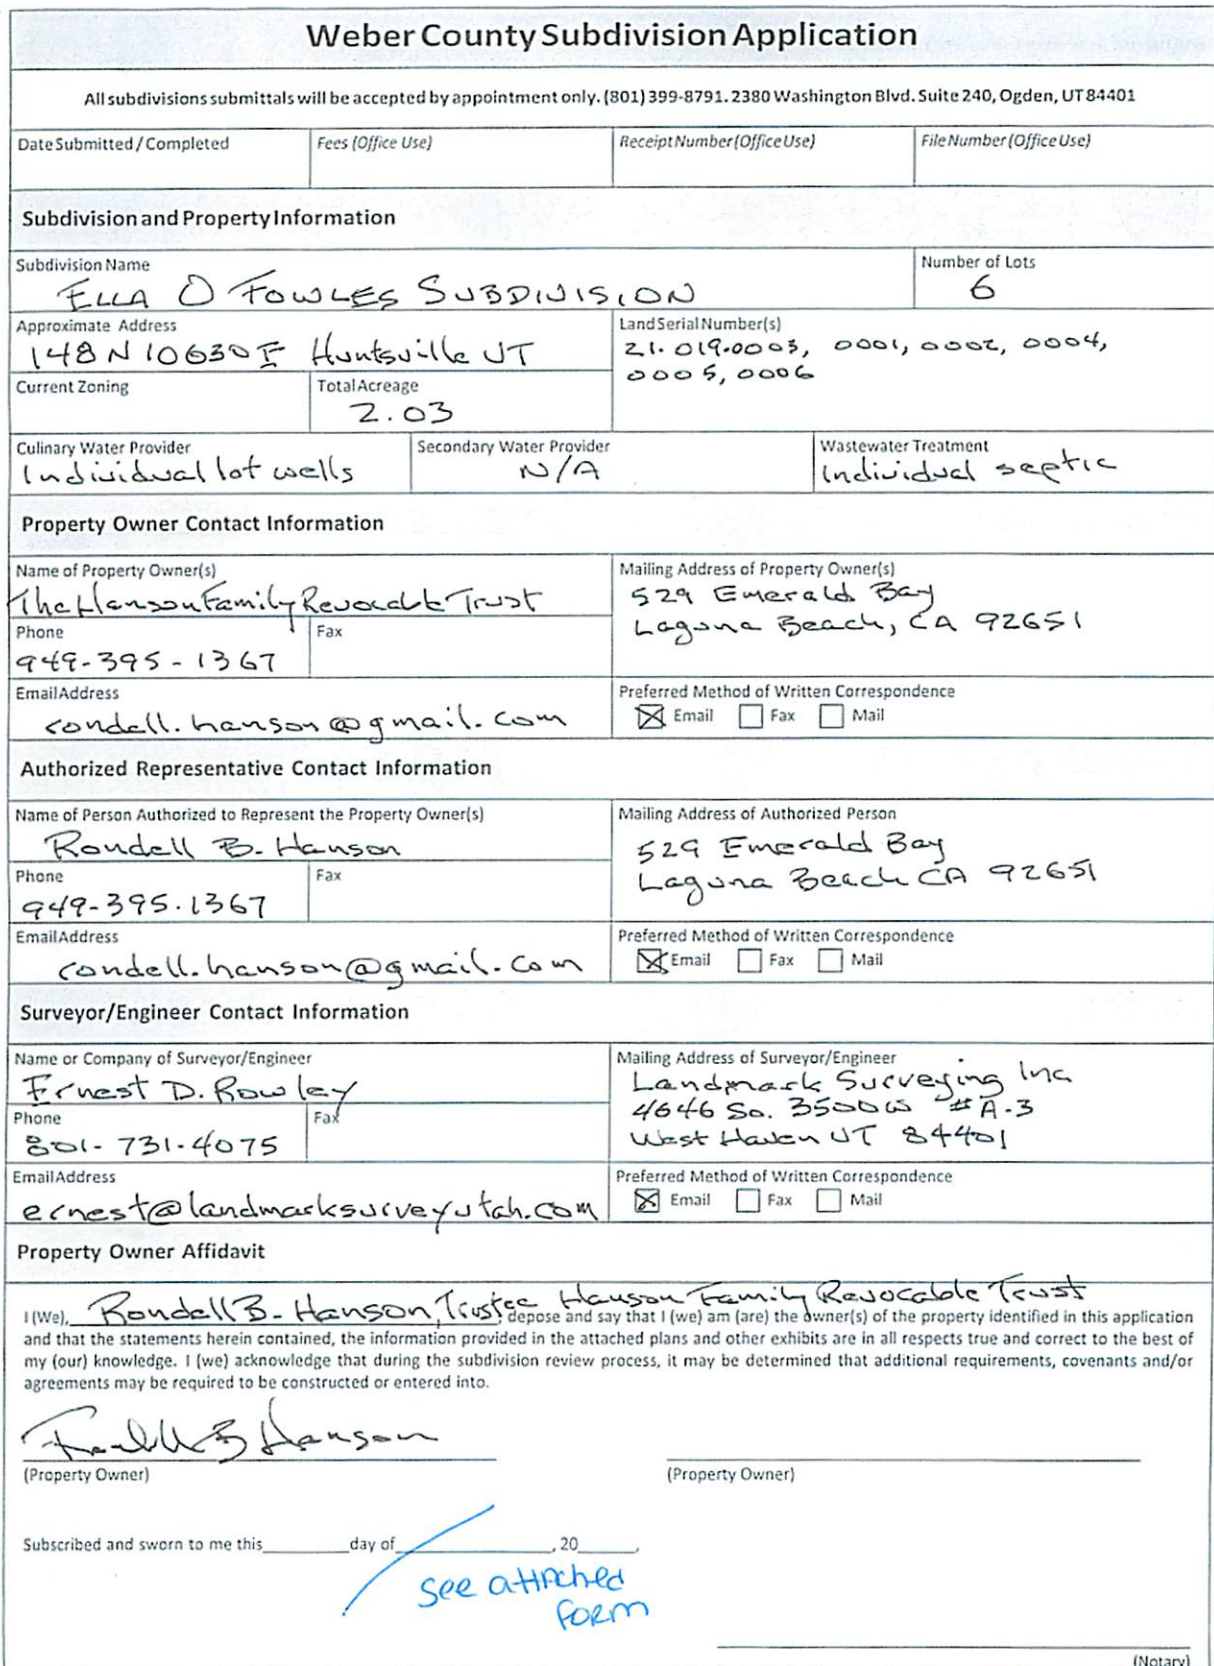 Weber County Subdivision Application
All subdivisions submittals will be accepted by appointment only. (801) 399-8791. 2380 Washington Blvd. Suite 240, Ogden, UT 84401
Date Submitted / Completed
Fees (Office Use)
Receipt Number (Office Use)
File Number (Office Use)
Subdivision and Property Information
Subdivision Name
ELLA O FOWLES SUBDIVISION
Number of Lots
6
Approximate Address
148 N 10630 E Huntsville UT
Land Serial Number(s)
21.019.0003, 0001, 0002, 0004,
0005, 0006
Current Zoning
Total Acreage
2.03
Culinary Water Provider
Individual lot wells
Secondary Water Provider
N/A
Wastewater Treatment
Individual septic
Property Owner Contact Information
Name of Property Owner(s)
The Hanson Family Revocable Trust
Mailing Address of Property Owner(s)
529 Emerald Bay
Laguna Beach, CA 92651
Phone
949-395-1367
Fax
Email Address
rondell.hanson@gmail.com
Preferred Method of Written Correspondence
Email Fax Mail
Authorized Representative Contact Information
Name of Person Authorized to Represent the Property Owner(s)
Rondell B. Hanson
Mailing Address of Authorized Person
529 Emerald Bay
Laguna Beach CA 92651
Phone
949-395.1367
Fax
Email Address
rondell.hanson@gmail.com
Preferred Method of Written Correspondence
Email Fax Mail
Surveyor/Engineer Contact Information
Name or Company of Surveyor/Engineer
Ernest D. Rowley
Mailing Address of Surveyor/Engineer
Landmark Surveying Inc
4646 So. 3500 W #A-3
West Haven UT 84401
Phone
801-731-4075
Fax
Email Address
ernest@landmarksurveyutah.com
Preferred Method of Written Correspondence
Email Fax Mail
Property Owner Affidavit
I (We), Rondell B. Hanson, Trustee Hanson Family Revocable Trust, depose and say that I (we) am (are) the owner(s) of the property identified in this application
and that the statements herein contained, the information provided in the attached plans and other exhibits are in all respects true and correct to the best of
my (our) knowledge. I (we) acknowledge that during the subdivision review process, it may be determined that additional requirements, covenants and/or
agreements may be required to be constructed or entered into.
Rondell B Hanson
(Property Owner)
(Property Owner)
Subscribed and sworn to me this________day of________________, 20______,
See attached
form
(Notary)